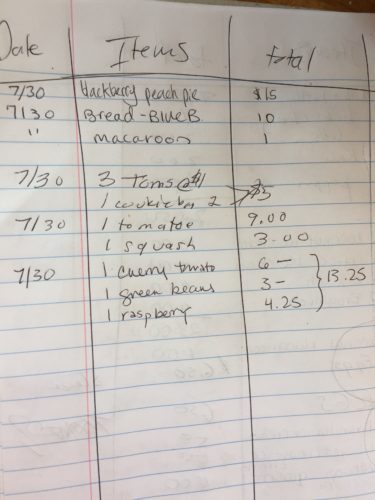 Date Items total
7/30 blackberry peach pie $15
7/30 Bread - Blue B. 10
" macaroon 1
7/30 3 Toms @ $1
1 2
7/30 1 tomatoe 9.00
1 squash 3.00
7/30 1 cherry tomato 6 —
1 green beans 3 - 13.25
1 raspberry 4.25